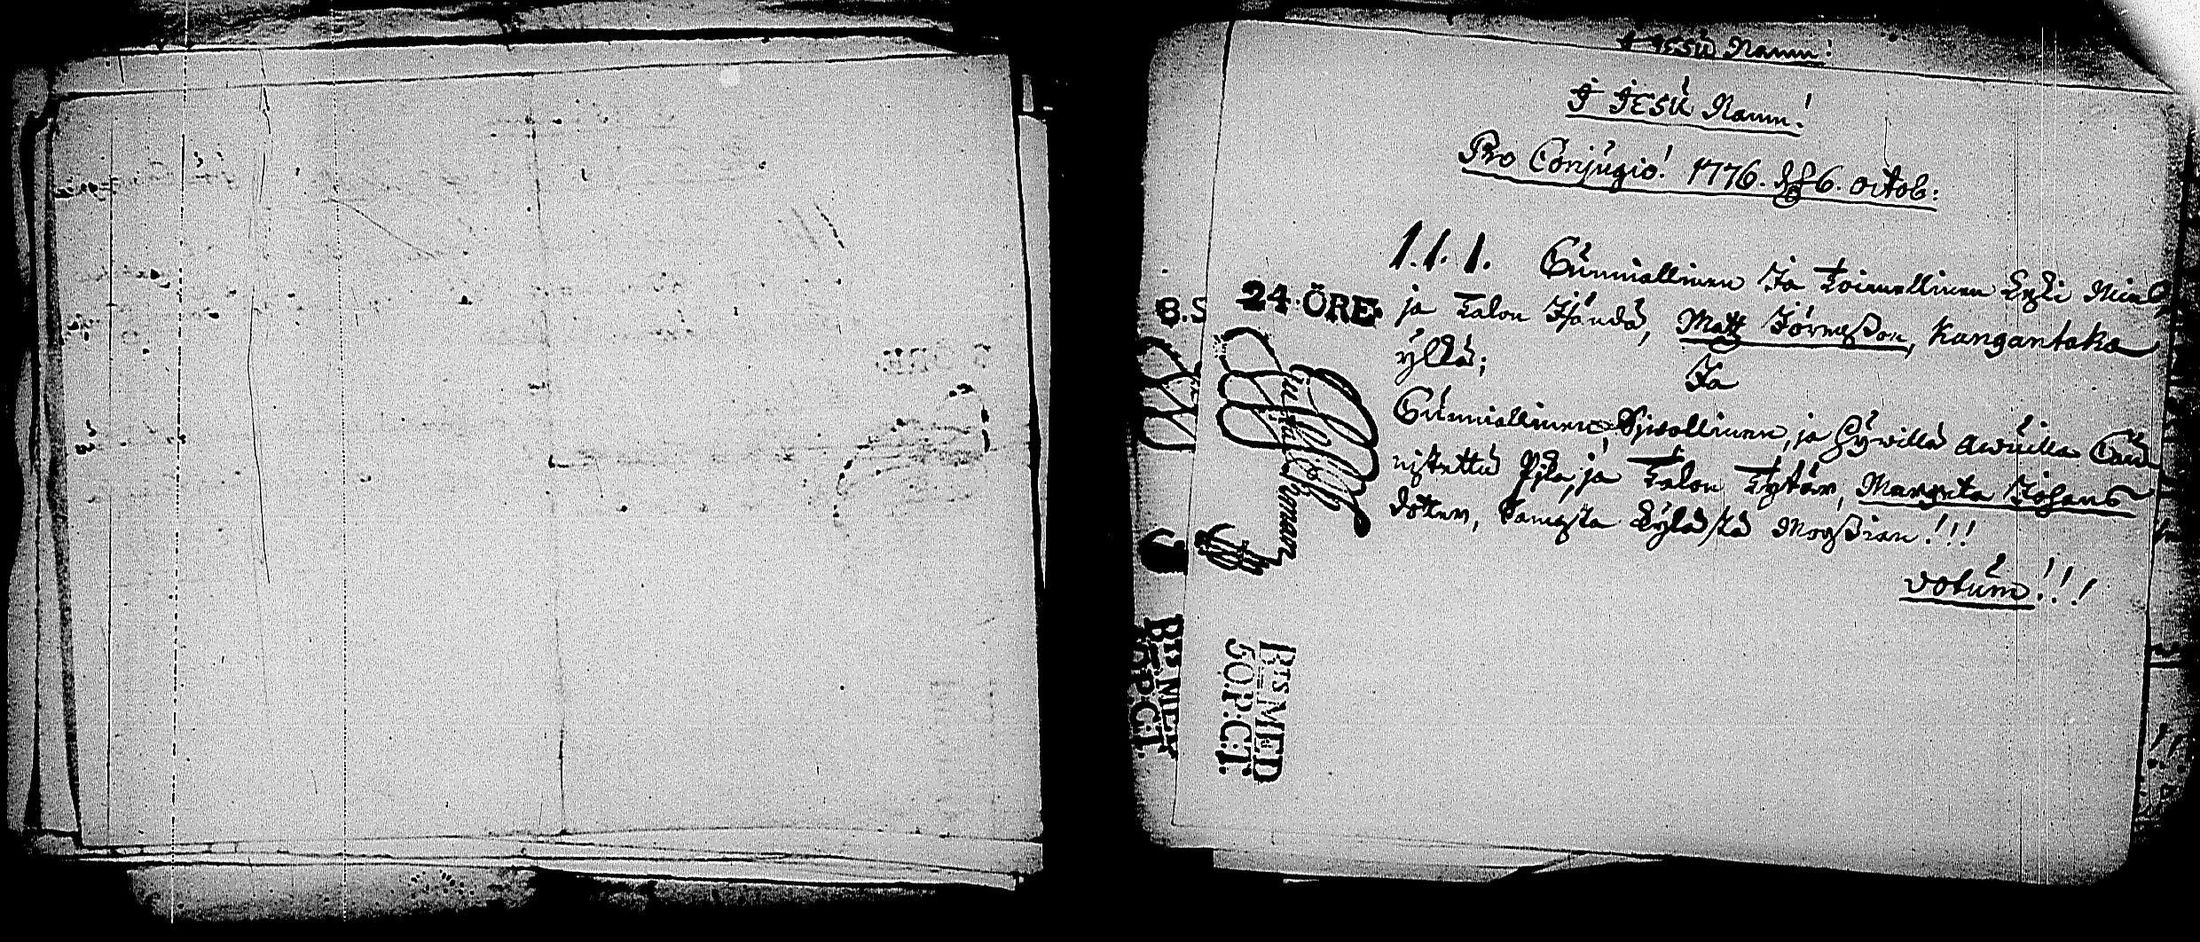 I JESU Namn!
I JESU Namn!
Pro Conjugio! 1776. d. 6. octob:
1. 1. 1. Cunniallinen Ja Toimellinen Mies
ja Talon Isändä, Matt Jöransson, Kangantaka
ylkä;
Ja
Cunniallinen, Sijwollinen, ja Hywillä awuilla Cau
nistettu Pija, ja Talon Tytär, Margeta Johans
dotter, samasta Kyläestä Morsian!!!
votum!!!
24. ÖRE.
B.S
Bts MED
50.P.C:T.